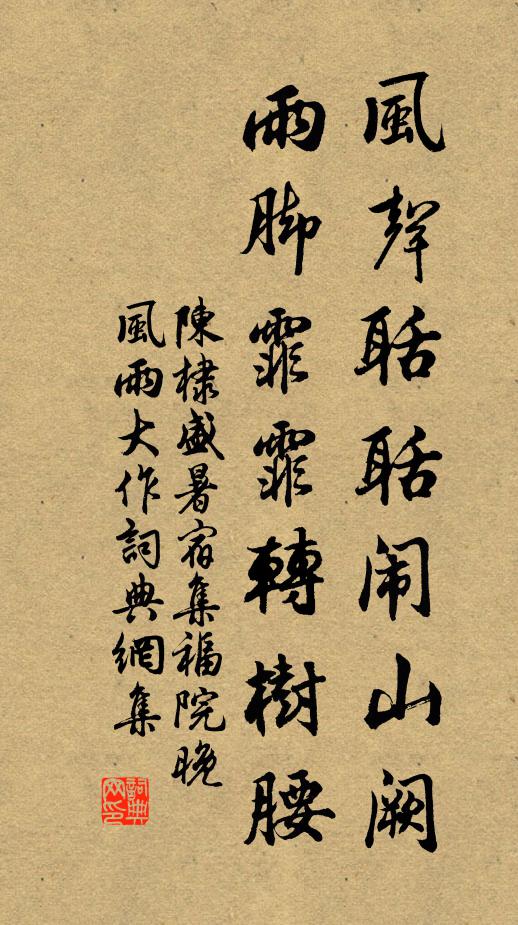 風聲聒聒闹山阙
雨脚霏霏轉樹腰
陳棣盛暑宿集福院晚
風雨大作詞典網集
詞典
网印